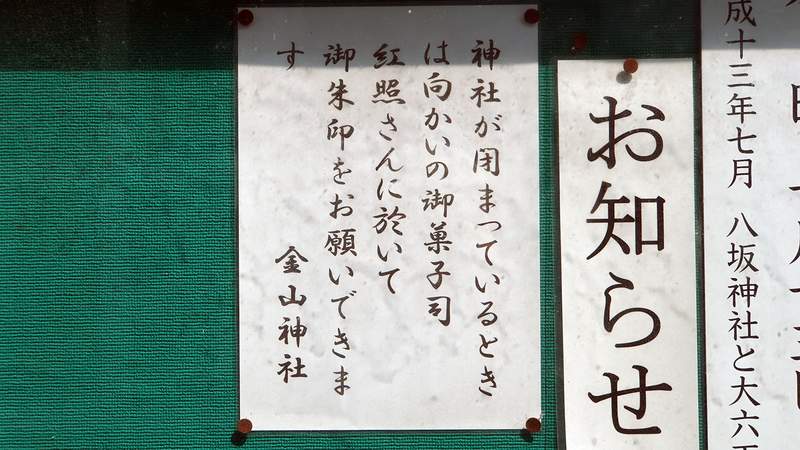 成十三年七月 八坂神社と大六
お知らせ
神社が閉まっているとき
は向かいの御菓子司
紅照さんに於いて
御朱印をお願いできま
す
金山神社